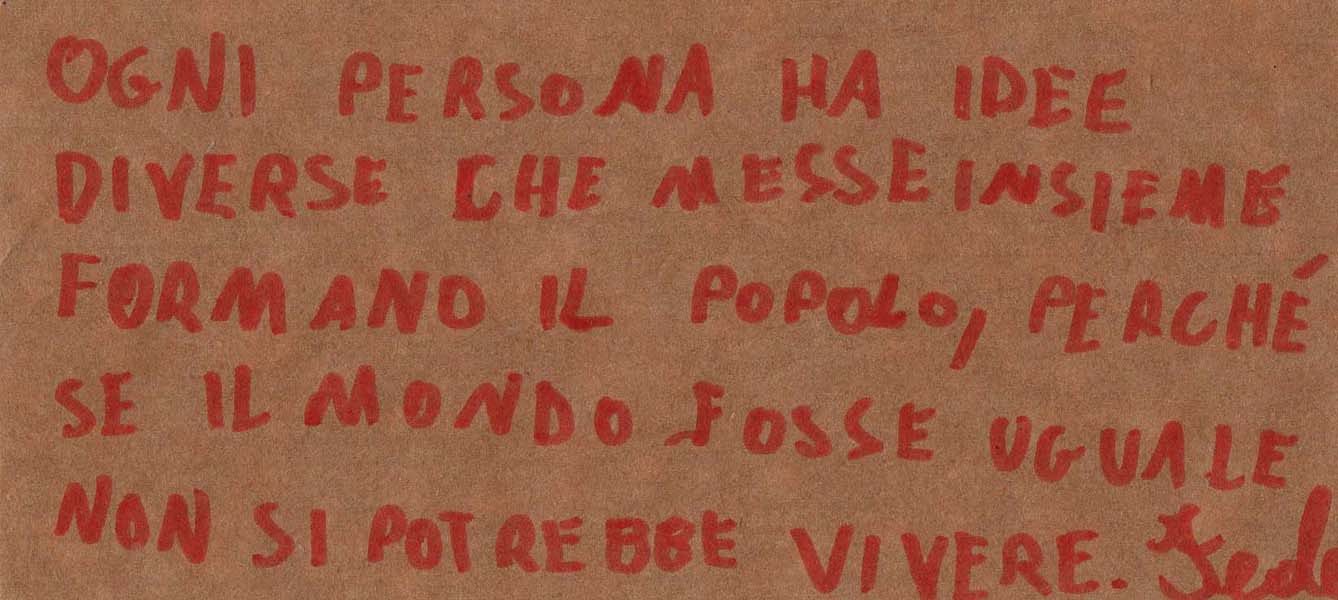 OGNI PERSONA HA IDEE
DIVERSE CHE MESSE INSIEME
FORMANO IL POPOLO, PERCHÉ
SE IL MONDO FOSSE UGUALE
NON SI POTREBBE VIVERE.